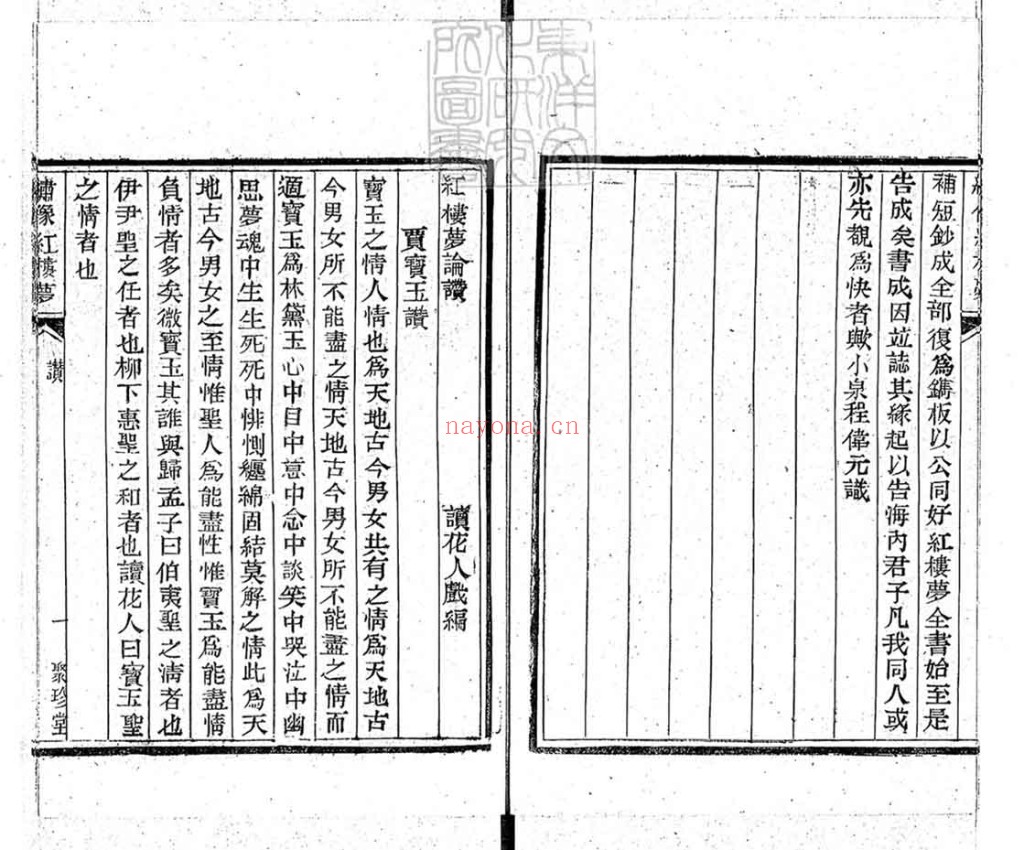 補短鈔成全部復爲鐫板以公同好紅樓夢全書始至是
告成矣書成因竝誌其緣起以告海內君子凡我同人或
亦先覩爲快者歟小泉程偉元識
紅樓夢論讚
讀花人戲編
賈寶玉讚
寶玉之情人情也爲天地古今男女共有之情爲天地古
今男女所不能盡之情天地古今男女所不能盡之情而
適寶玉爲林黛玉心中目中意中念中談笑中哭泣中幽
思夢魂中生生死死中悱惻纏綿固結莫解之情此爲天
地古今男女之至情惟聖人爲能盡性惟寶玉爲能盡情
負情者多矣微寶玉其誰與歸孟子曰伯夷聖之清者也
伊尹聖之任者也柳下惠聖之和者也讀花人曰寶玉聖
之情者也
繡像紅樓夢
讚
一
聚珍堂
nayona.cn